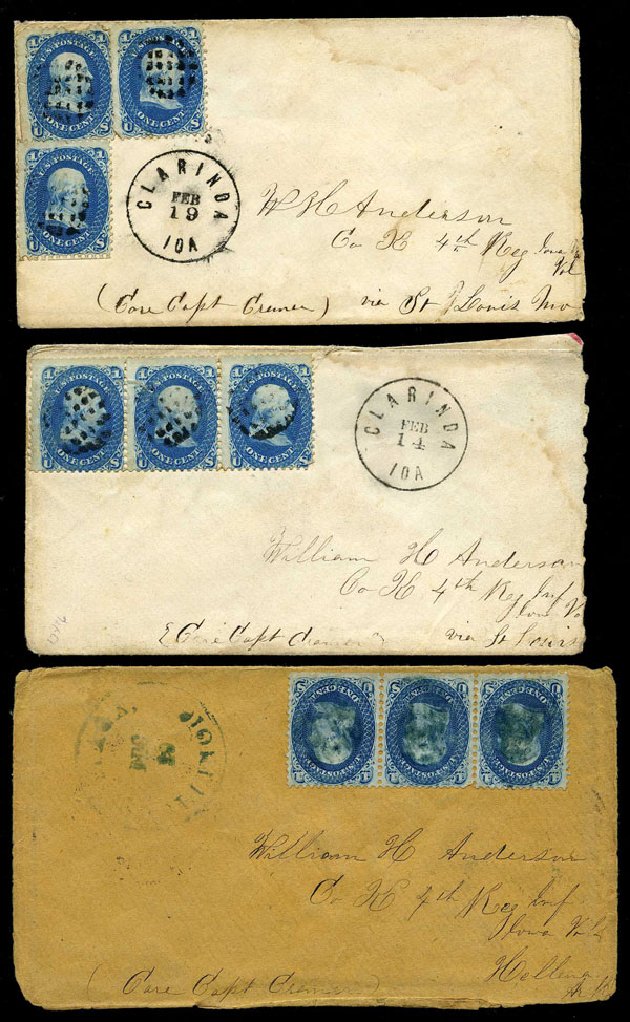 U.S. POSTAGE U.S. POSTAGE
ONE CENT ONE CENT
U.S. POSTAGE
ONE CENT
CLARINDA
FEB
19
IOA
W H Anderson
Co K 4th Reg Iowa
Vol
(Care Capt Cramer) via St Louis Mo
U.S. POSTAGE U.S. POSTAGE U.S. POSTAGE
ONE CENT ONE CENT ONE CENT
CLARINDA
FEB
14
IOA
William H Anderson
Co K 4th Reg Inf
Iowa Vo
Care Capt Cramer via St Louis
U.S. POSTAGE U.S. POSTAGE U.S. POSTAGE
ONE CENT ONE CENT ONE CENT
William H Anderson
Co K 4th Reg Inf
Iowa Vol
Hellena
(Care Capt Cramer)